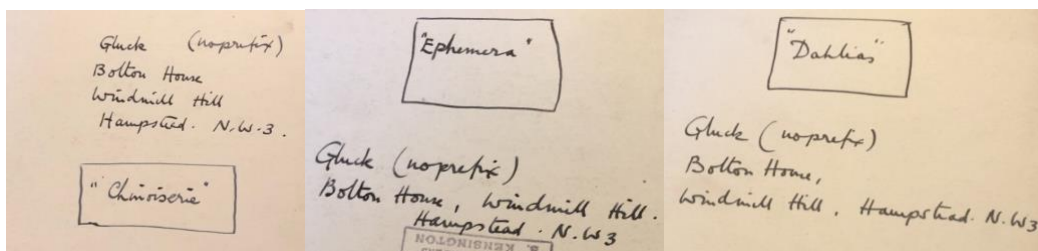 Gluck (no prefix)
Bolton House
Windmill Hill
Hampstead. N.W.3.
"Chinoiserie"
"Ephemera"
Gluck (no prefix)
Bolton House, Windmill Hill.
Hampstead. N.W3
S. KENSINGTON
"Dahlias"
Gluck (no prefix)
Bolton House,
Windmill Hill, Hampstead. N.W3